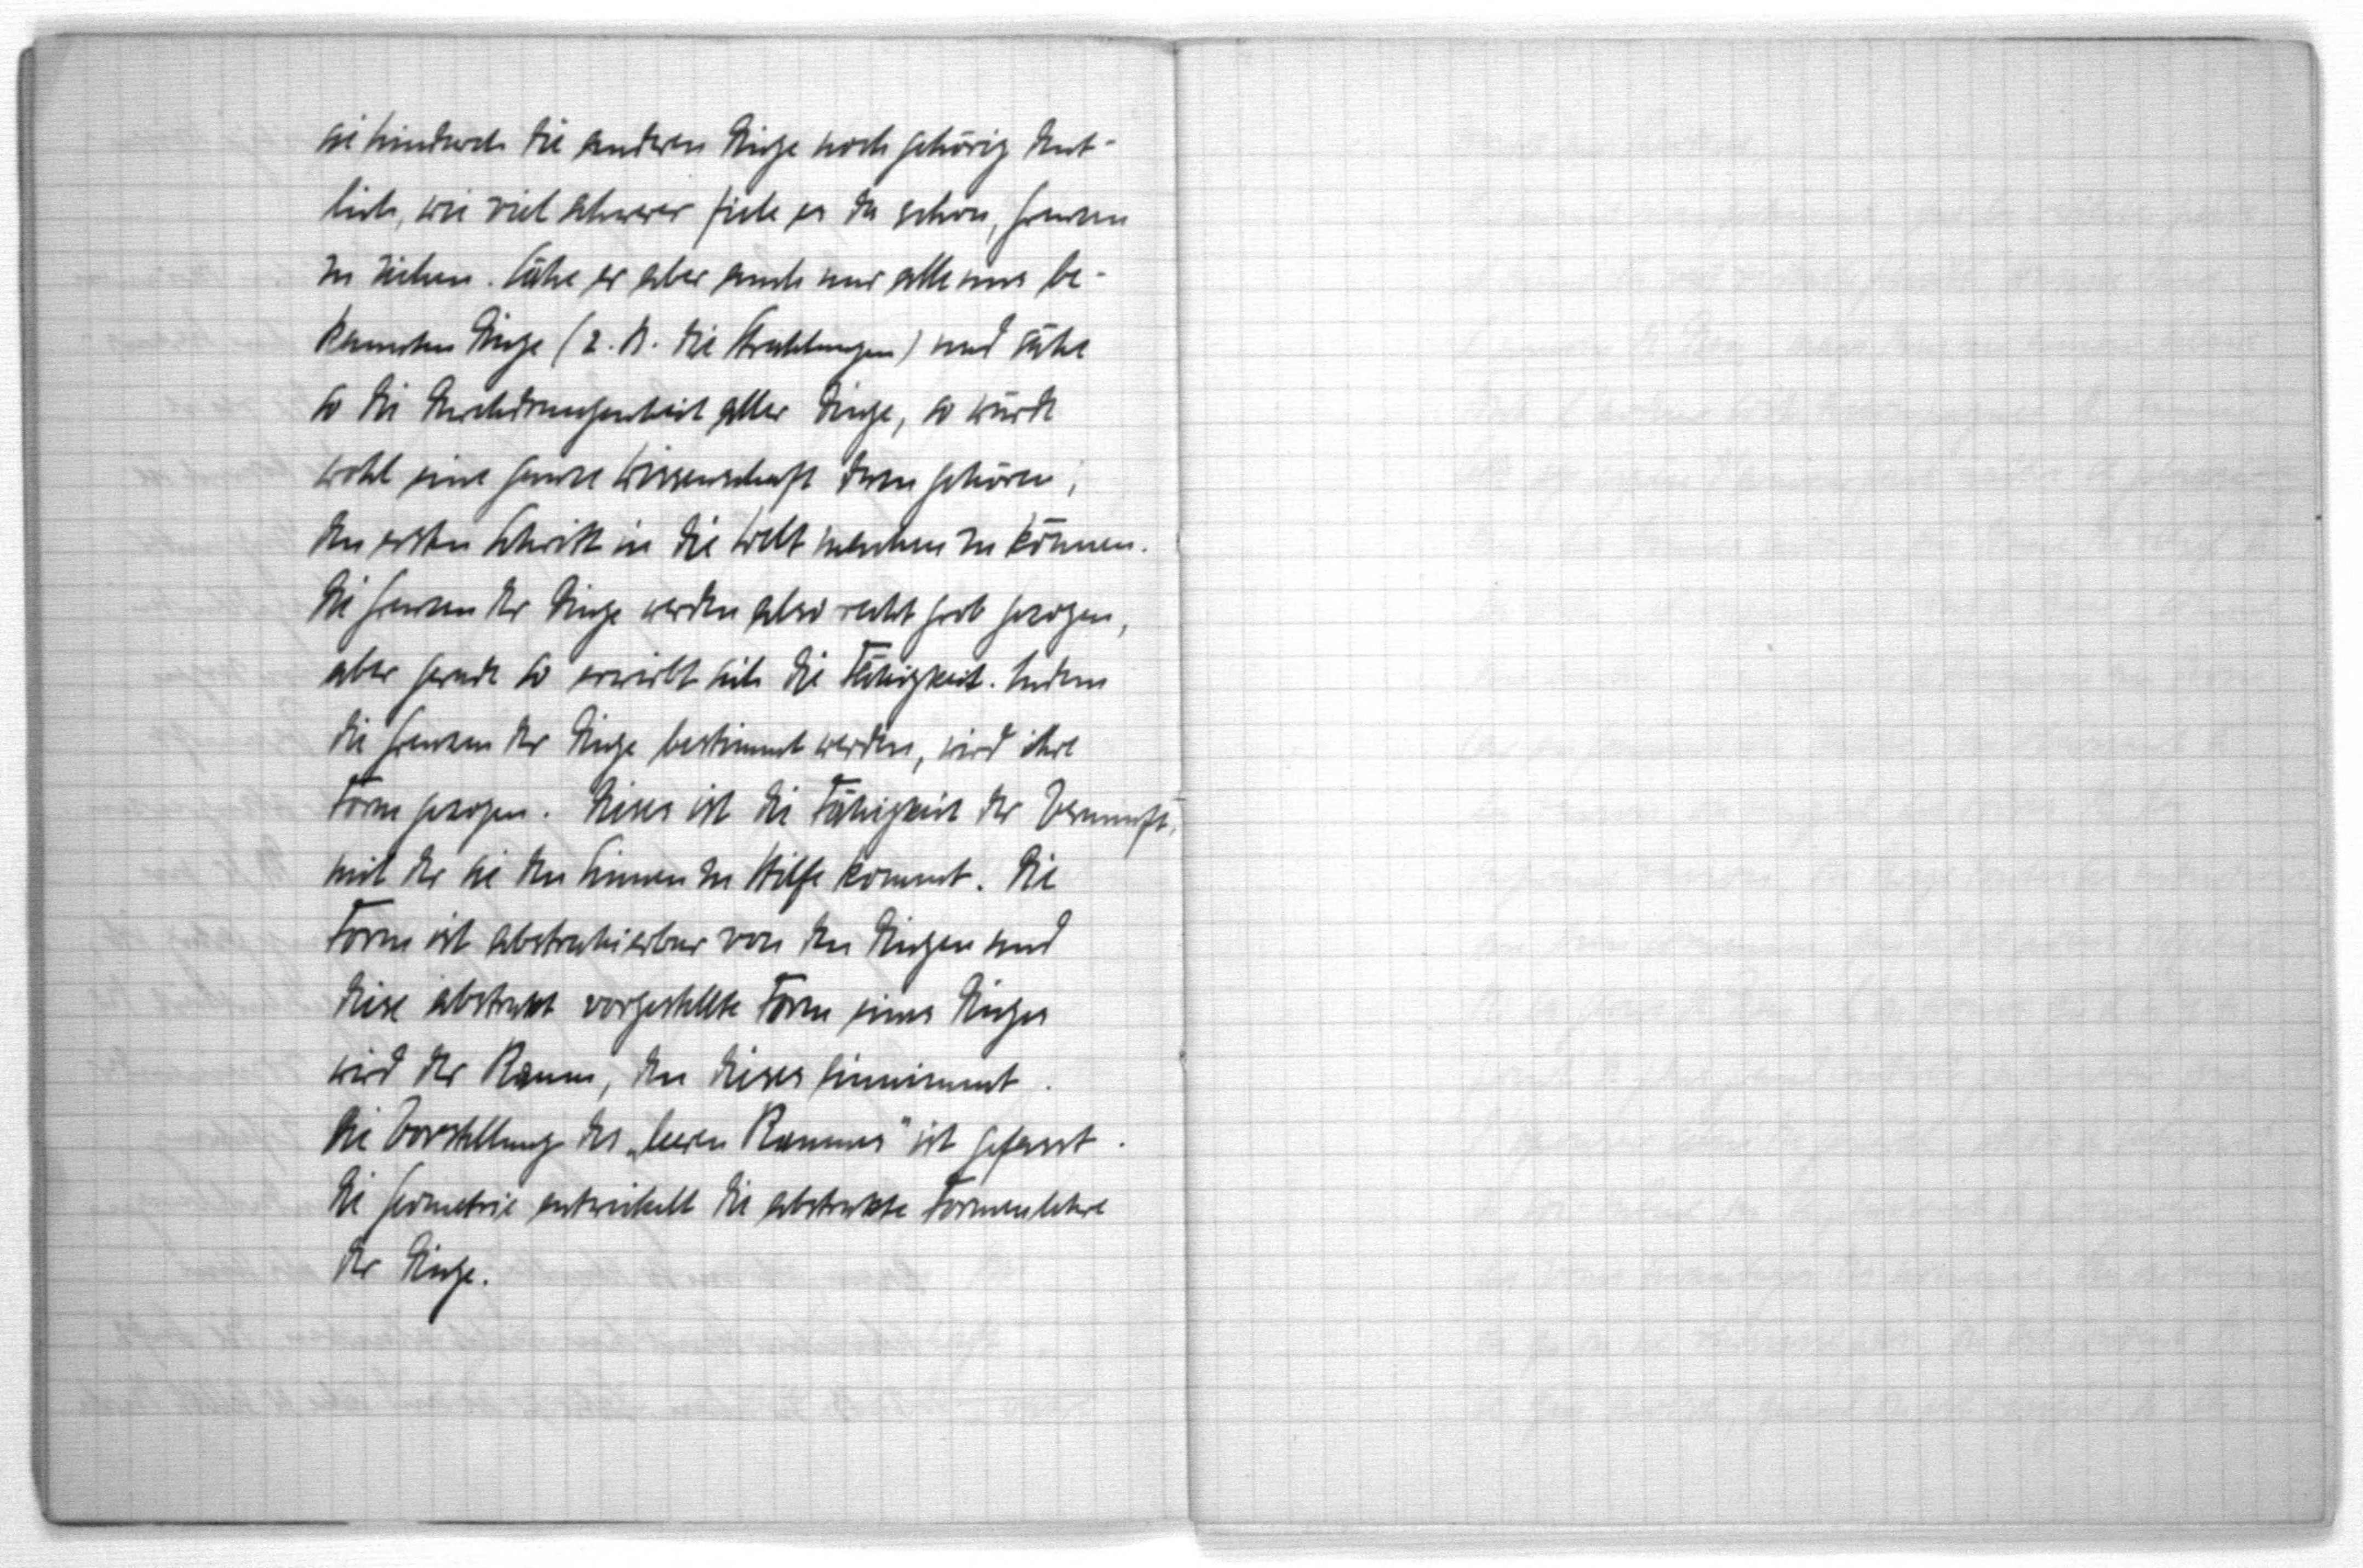 sie hindurch die anderen Dinge noch gehörig deut-
lich, wie viel schwerer fiele es da schon, Grenzen
zu ziehen. Sähe er aber auch nur alle uns be-
kannten Dinge (z. B. die Strahlungen) und sähe
so die Durchdrungenheit aller Dinge, so würde
wohl eine ganze Wissenschaft dazu gehören,
den ersten Schritt in die Welt machen zu können.
Die Grenzen der Dinge werden also recht grob gezogen,
aber gerade so erwirbt sich die Fähigkeit. Indem
die Grenzen der Dinge bestimmt werden, wird ihre
Form gezogen. Dieses ist die Fähigkeit der Vernunft,
mit der sie den Sinnen zu Hilfe kommt. Die
Form ist abstrahierbar von den Dingen und
diese abstrakt vorgestellte Form eines Dinges
wird der Raum, den dieses einnimmt.
Die Vorstellung des „leeren Raumes" ist gefasst.
Die Geometrie entwickelt die abstrakte Formenlehre
der Dinge.